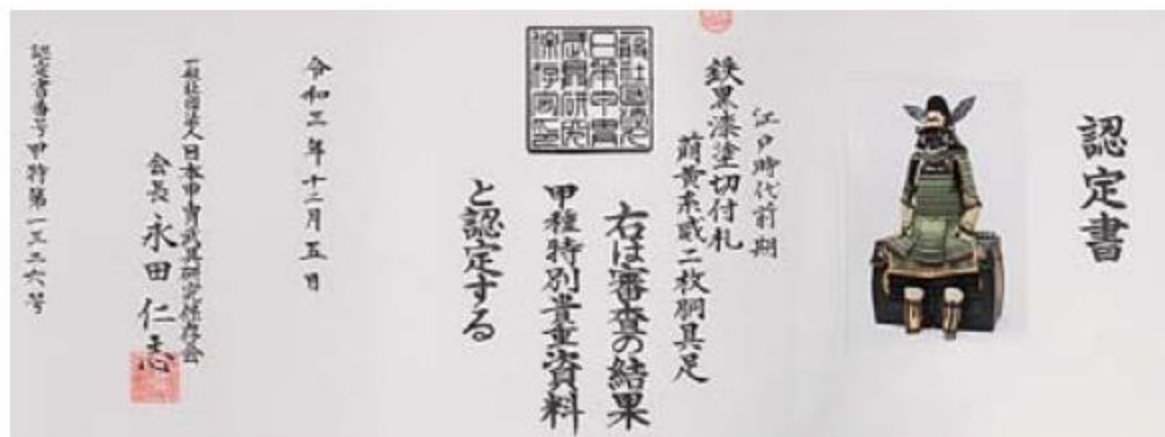 認定書
江戸時代前期
鉄黒漆塗切付札
萌黄糸威二枚胴具足
右は審査の結果
甲種特別貴重資料
と認定する
令和三年十二月五日
一般社団法人日本甲冑武具研究保存会
会長 永田仁志
認定書番号甲特第一三三六号